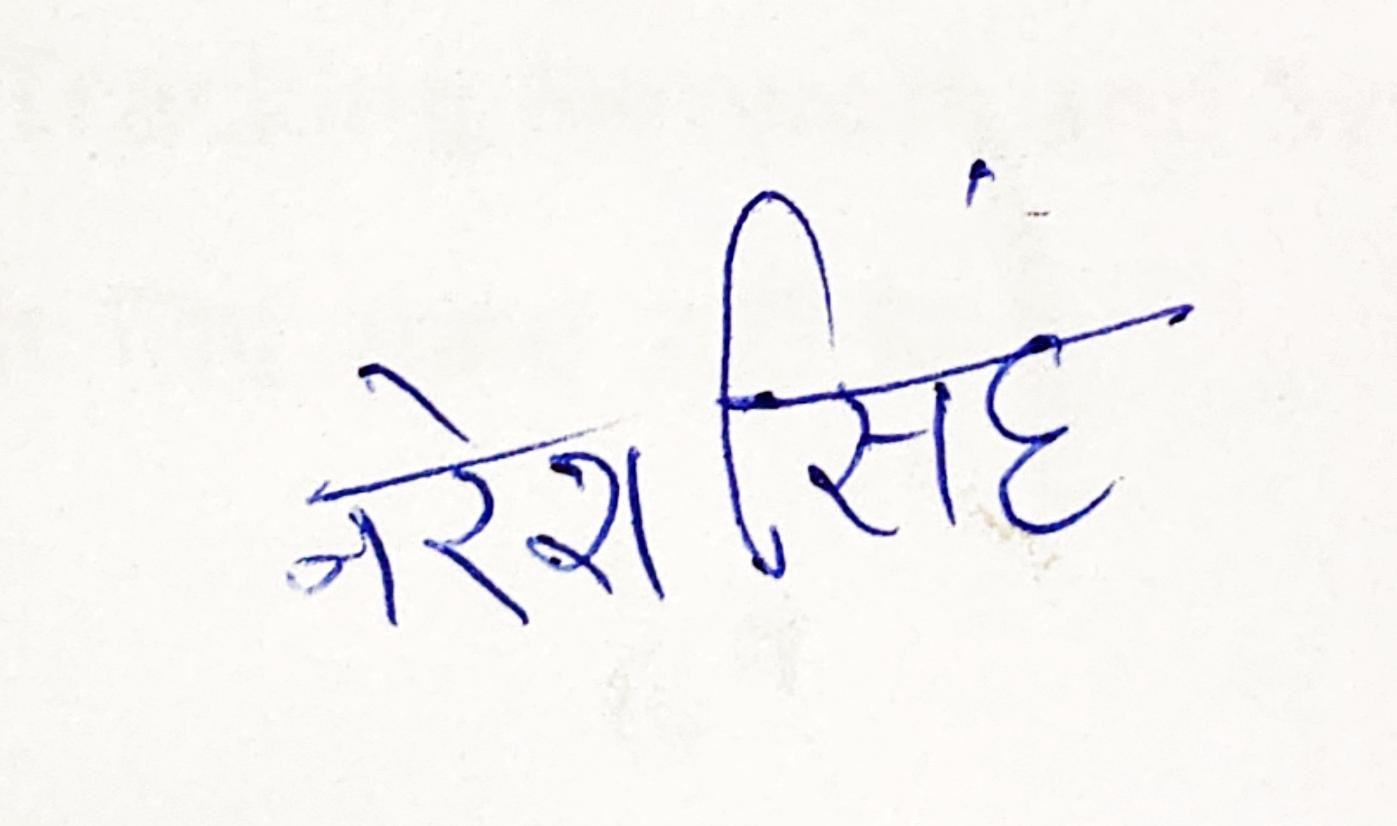 नरेश सिंह